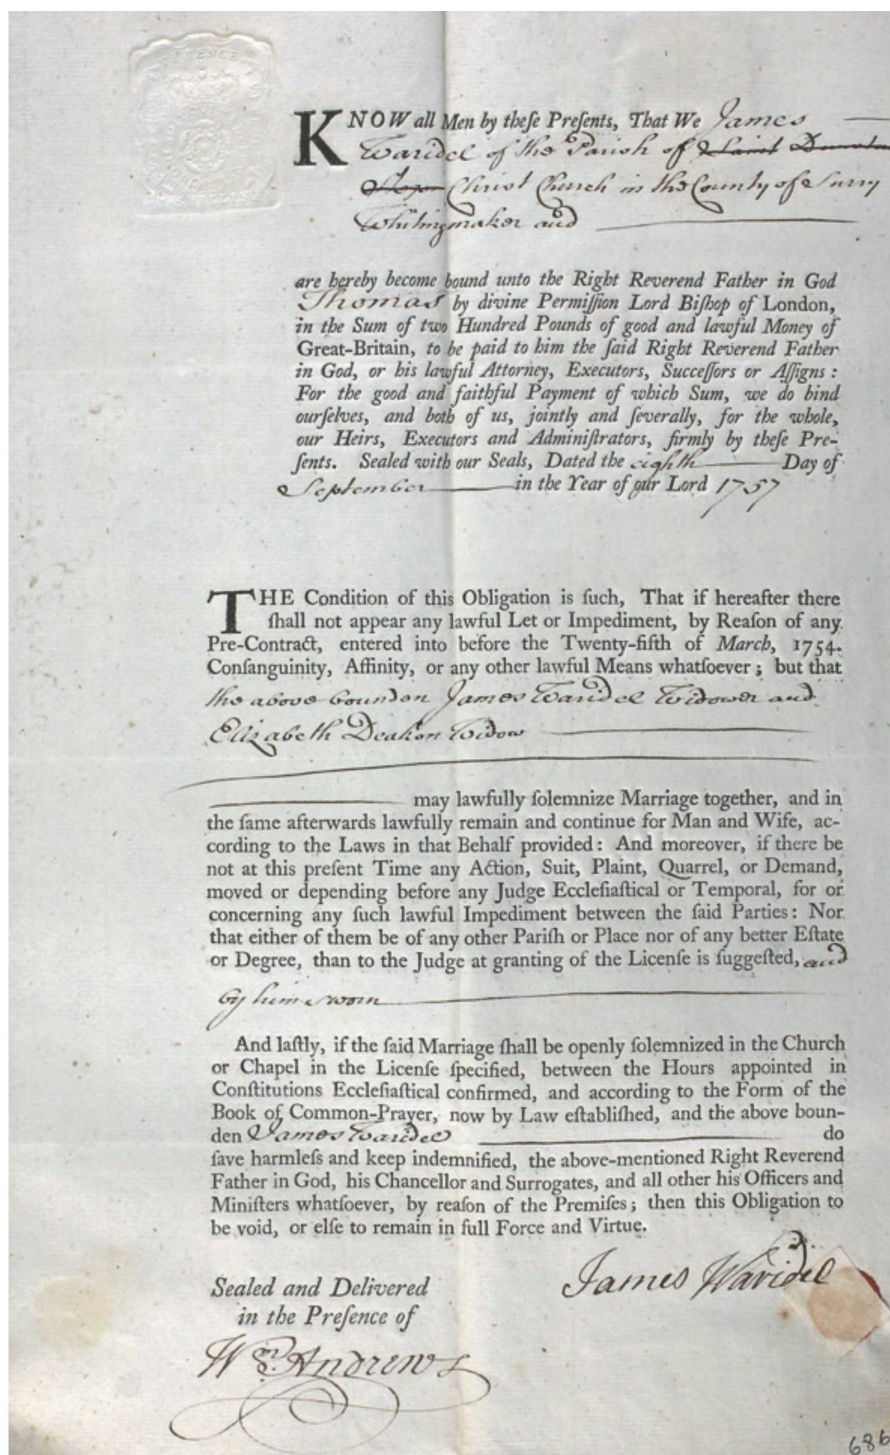 KNOW all Men by theſe Preſents, That We James
Waridel of the Pariſh of Saint Dunstan
Christ Church in the County of Surry
Whitingmaker and
are hereby become bound unto the Right Reverend Father in God
Thomas by divine Permiſſion Lord Biſhop of London,
in the Sum of two Hundred Pounds of good and lawful Money of
Great-Britain, to be paid to him the ſaid Right Reverend Father
in God, or his lawful Attorney, Executors, Succeſſors or Aſſigns :
For the good and faithful Payment of which Sum, we do bind
ourſelves, and both of us, jointly and ſeverally, for the whole,
our Heirs, Executors and Adminiſtrators, firmly by theſe Pre-
ſents. Sealed with our Seals, Dated the eighth Day of
September in the Year of our Lord 1757
THE Condition of this Obligation is ſuch, That if hereafter there
ſhall not appear any lawful Let or Impediment, by Reaſon of any
Pre-Contract, entered into before the Twenty-fifth of March, 1754.
Conſanguinity, Affinity, or any other lawful Means whatſoever ; but that
the above bounden James Waridel Widower and
Elizabeth Deakon Widow
may lawfully ſolemnize Marriage together, and in
the ſame afterwards lawfully remain and continue for Man and Wife, ac-
cording to the Laws in that Behalf provided : And moreover, if there be
not at this preſent Time any Action, Suit, Plaint, Quarrel, or Demand,
moved or depending before any Judge Eccleſiaſtical or Temporal, for or
concerning any ſuch lawful Impediment between the ſaid Parties : Nor
that either of them be of any other Pariſh or Place nor of any better Eſtate
or Degree, than to the Judge at granting of the Licenſe is ſuggeſted, and
by him sworn
And laſtly, if the ſaid Marriage ſhall be openly ſolemnized in the Church
or Chapel in the Licenſe ſpecified, between the Hours appointed in
Conſtitutions Eccleſiaſtical confirmed, and according to the Form of the
Book of Common-Prayer, now by Law eſtabliſhed, and the above boun-
den James Waridel do
ſave harmleſs and keep indemnified, the above-mentioned Right Reverend
Father in God, his Chancellor and Surrogates, and all other his Officers and
Miniſters whatſoever, by reaſon of the Premiſes ; then this Obligation to
be void, or elſe to remain in full Force and Virtue.
James Waridel
Sealed and Delivered
in the Preſence of
Wm. Andrews
686